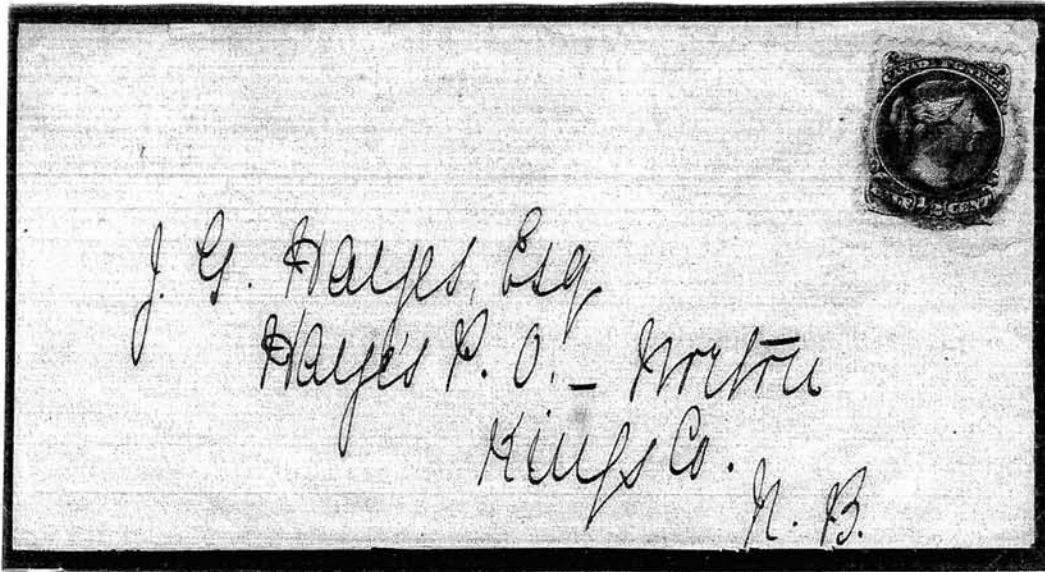 CANADA POSTAGE
J. G. Hayes, Esq
Hayes P. O. – Norton
Kings Co.
N. B.